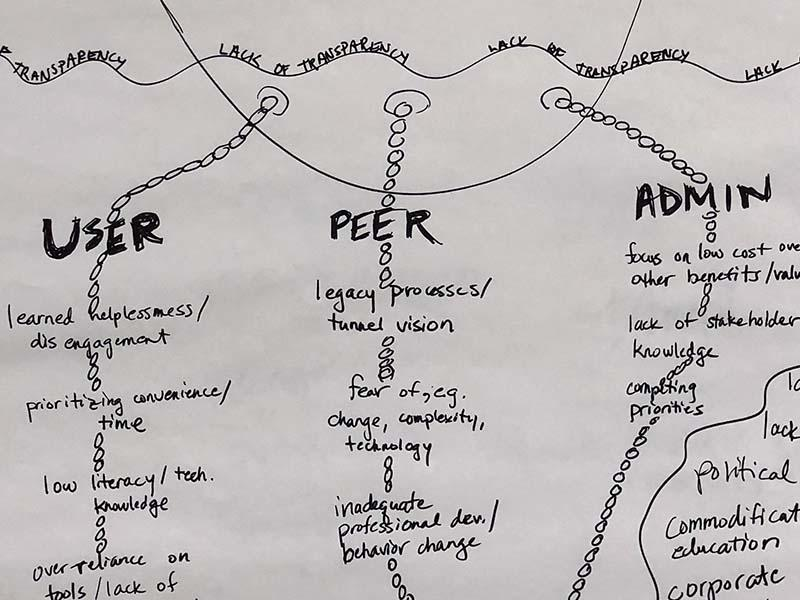 TRANSPARENCY LACK OF TRANSPARENCY LACK OF TRANSPARENCY LACK
USER
learned helplessmess/
disengagement
prioritizing convenience/
time
low literacy/tech.
knowledge
over-reliance on
tools/lack of
PEER
legacy processes/
tunnel vision
fear of, e.g.
change, complexity,
technology
inadequate
professional dev./
behavior change
ADMIN
focus on low cost over
other benefits/valu
lack of stakeholder
knowledge
competing
priorities
lack
political
commodificat
education
corporate